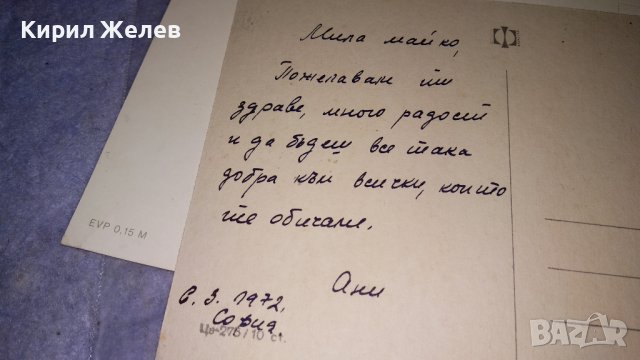 Кирил Желев
Мила майко,
Пожелавам ти
здраве, много радост
и да бъдеш все така
добра към всички, които
те обичаме.
Ани
6. 3. 1972,
София
EVP 0,15 M
bazar.bg